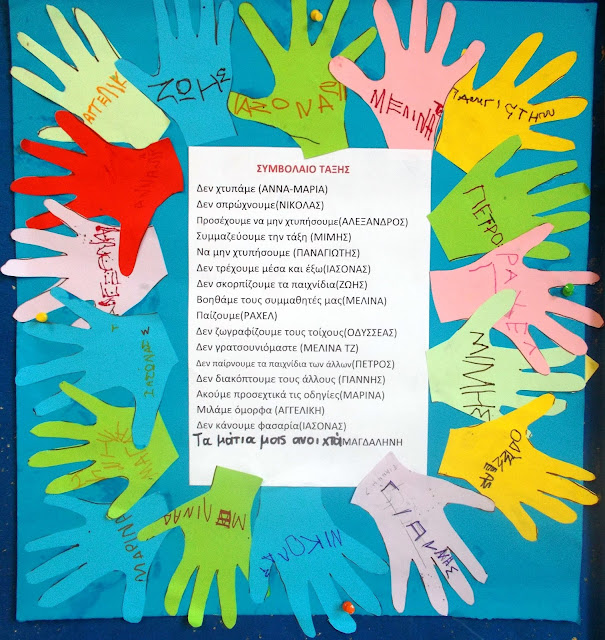 ΑΓΓΕΛΙΚ
ΖΩΗΣ
ΙΑΣΟΝΑΣ
ΜΕΛΙΝΑ ΤΖ
ΠΕΤΡΟ
ΡΑΧΕΛ
ΜΙΜΗΣ
ΟΔΥΣΣΕΑΣ
ΓΙΑΝΝΗΣ
ΝΙΚΟΛΑΣ
ΜΑΡΙΝΑ
ΙΑΣΟΝΑΣ
ΣΥΜΒΟΛΑΙΟ ΤΑΞΗΣ
Δεν χτυπάμε (ΑΝΝΑ-ΜΑΡΙΑ)
Δεν σπρώχνουμε(ΝΙΚΟΛΑΣ)
Προσέχουμε να μην χτυπήσουμε(ΑΛΕΞΑΝΔΡΟΣ)
Συμμαζεύουμε την τάξη (ΜΙΜΗΣ)
Να μην χτυπήσουμε (ΠΑΝΑΓΙΩΤΗΣ)
Δεν τρέχουμε μέσα και έξω(ΙΑΣΟΝΑΣ)
Δεν σκορπίζουμε τα παιχνίδια(ΖΩΗΣ)
Βοηθάμε τους συμμαθητές μας(ΜΕΛΙΝΑ)
Παίζουμε(ΡΑΧΕΛ)
Δεν ζωγραφίζουμε τους τοίχους(ΟΔΥΣΣΕΑΣ)
Δεν γρατσουνιόμαστε (ΜΕΛΙΝΑ ΤΖ)
Δεν παίρνουμε τα παιχνίδια των άλλων(ΠΕΤΡΟΣ)
Δεν διακόπτουμε τους άλλους (ΓΙΑΝΝΗΣ)
Ακούμε προσεχτικά τις οδηγίες(ΜΑΡΙΝΑ)
Μιλάμε όμορφα (ΑΓΓΕΛΙΚΗ)
Δεν κάνουμε φασαρία(ΙΑΣΟΝΑΣ)
Τα μάτια μας ανοιχτά ΜΑΓΔΑΛΗΝΗ